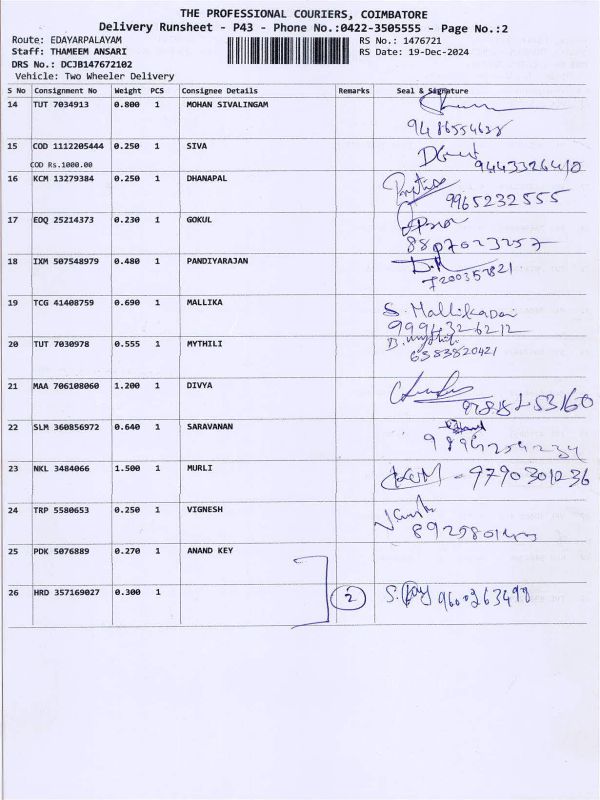 THE PROFESSIONAL COURIERS, COIMBATORE
Delivery Runsheet - P43 - Phone No.:0422-3505555 - Page No.:2
Route: EDAYARPALAYAM
Staff: THAMEEM ANSARI
DRS No.: DCJB147672102
Vehicle: Two Wheeler Delivery
RS No.: 1476721
RS Date: 19-Dec-2024
S No Consignment No Weight PCS Consignee Details Remarks Seal & Signature
14 TUT 7034913 0.800 1 MOHAN SIVALINGAM
15 COD 1112205444 0.250 1 SIVA
COD Rs.1000.00
16 KCM 13279384 0.250 1 DHANAPAL
9965232555
17 EDQ 25214373 0.230 1 GOKUL
8807023257
18 IXM 507548979 0.480 1 PANDIYARAJAN
7200357821
19 TCG 41408759 0.690 1 MALLIKA
S. Mallika
9994326212
20 TUT 7030978 0.555 1 MYTHILI
6383820421
21 MAA 706108060 1.200 1 DIVYA
22 SLM 360856972 0.640 1 SARAVANAN
9894254234
23 NKL 3484066 1.500 1 MURLI 9790301236
24 TRP 5580653 0.250 1 VIGNESH
25 PDK 5076889 0.270 1 ANAND KEY
26 HRD 357169027 0.300 1 2 9600263498